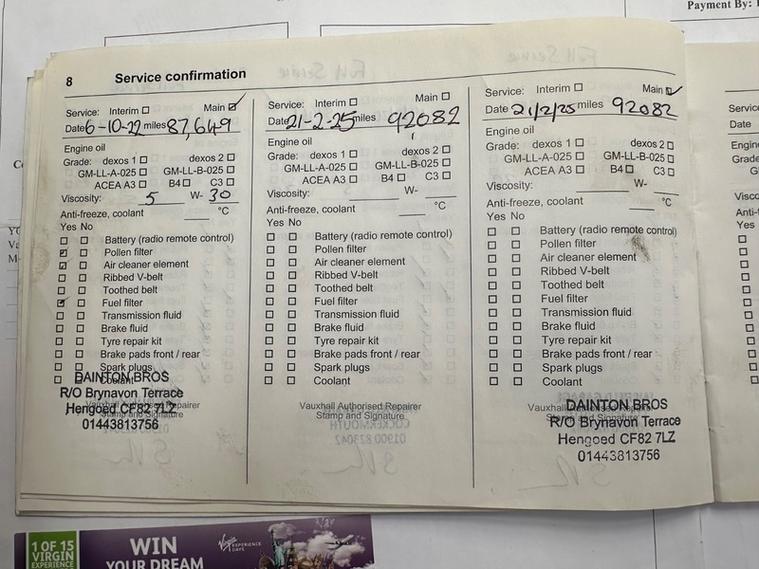 Payment By:
8 Service confirmation
Service: Interim Main
Date 6-10-22 miles 87,649
Engine oil
Grade: dexos 1 dexos 2
GM-LL-A-025 GM-LL-B-025
ACEA A3 B4 C3
Viscosity: 5 W- 30
Anti-freeze, coolant °C
Yes No
Battery (radio remote control)
Pollen filter
Air cleaner element
Ribbed V-belt
Toothed belt
Fuel filter
Transmission fluid
Brake fluid
Tyre repair kit
Brake pads front / rear
Spark plugs
Coolant
DAINTON BROS
R/O Brynavon Terrace
Vauxhall Authorised Repairer
Hengoed CF82 7LZ
Stamp and Signature
01443813756
Service: Interim Main
Date 21-2-25 miles 92082
Engine oil
Grade: dexos 1 dexos 2
GM-LL-A-025 GM-LL-B-025
ACEA A3 B4 C3
Viscosity: W-
Anti-freeze, coolant °C
Yes No
Battery (radio remote control)
Pollen filter
Air cleaner element
Ribbed V-belt
Toothed belt
Fuel filter
Transmission fluid
Brake fluid
Tyre repair kit
Brake pads front / rear
Spark plugs
Coolant
Vauxhall Authorised Repairer
Stamp and Signature
Service: Interim Main
Date 21/2/25 miles 92082
Engine oil
Grade: dexos 1 dexos 2
GM-LL-A-025 GM-LL-B-025
ACEA A3 B4 C3
Viscosity: W-
Anti-freeze, coolant °C
Yes No
Battery (radio remote control)
Pollen filter
Air cleaner element
Ribbed V-belt
Toothed belt
Fuel filter
Transmission fluid
Brake fluid
Tyre repair kit
Brake pads front / rear
Spark plugs
Coolant
Vauxhall Authorised Repairer
DAINTON BROS
Stamp and Signature
R/O Brynavon Terrace
Hengoed CF82 7LZ
01443813756
Date
Yes
1 OF 15
VIRGIN
EXPERIENCE
WIN
YOUR DREAM
Virgin EXPERIENCE DAYS